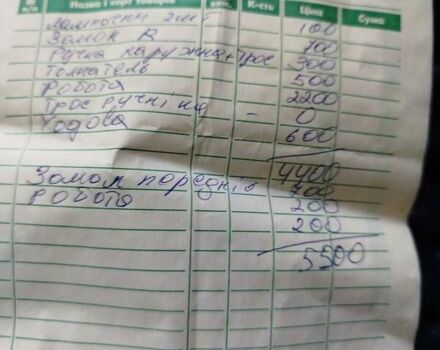 № п/п Назва і сорт товарів вим. К-сть Ціна Сума
Лампочки 2шт 100
Замок В 700
Ручка наружна+трос 300
Толкатель 500
Робота 2200
Трос ручні - 0
Ходова 600
4400
Замок пороедніо 700
Робота 200
200
5500